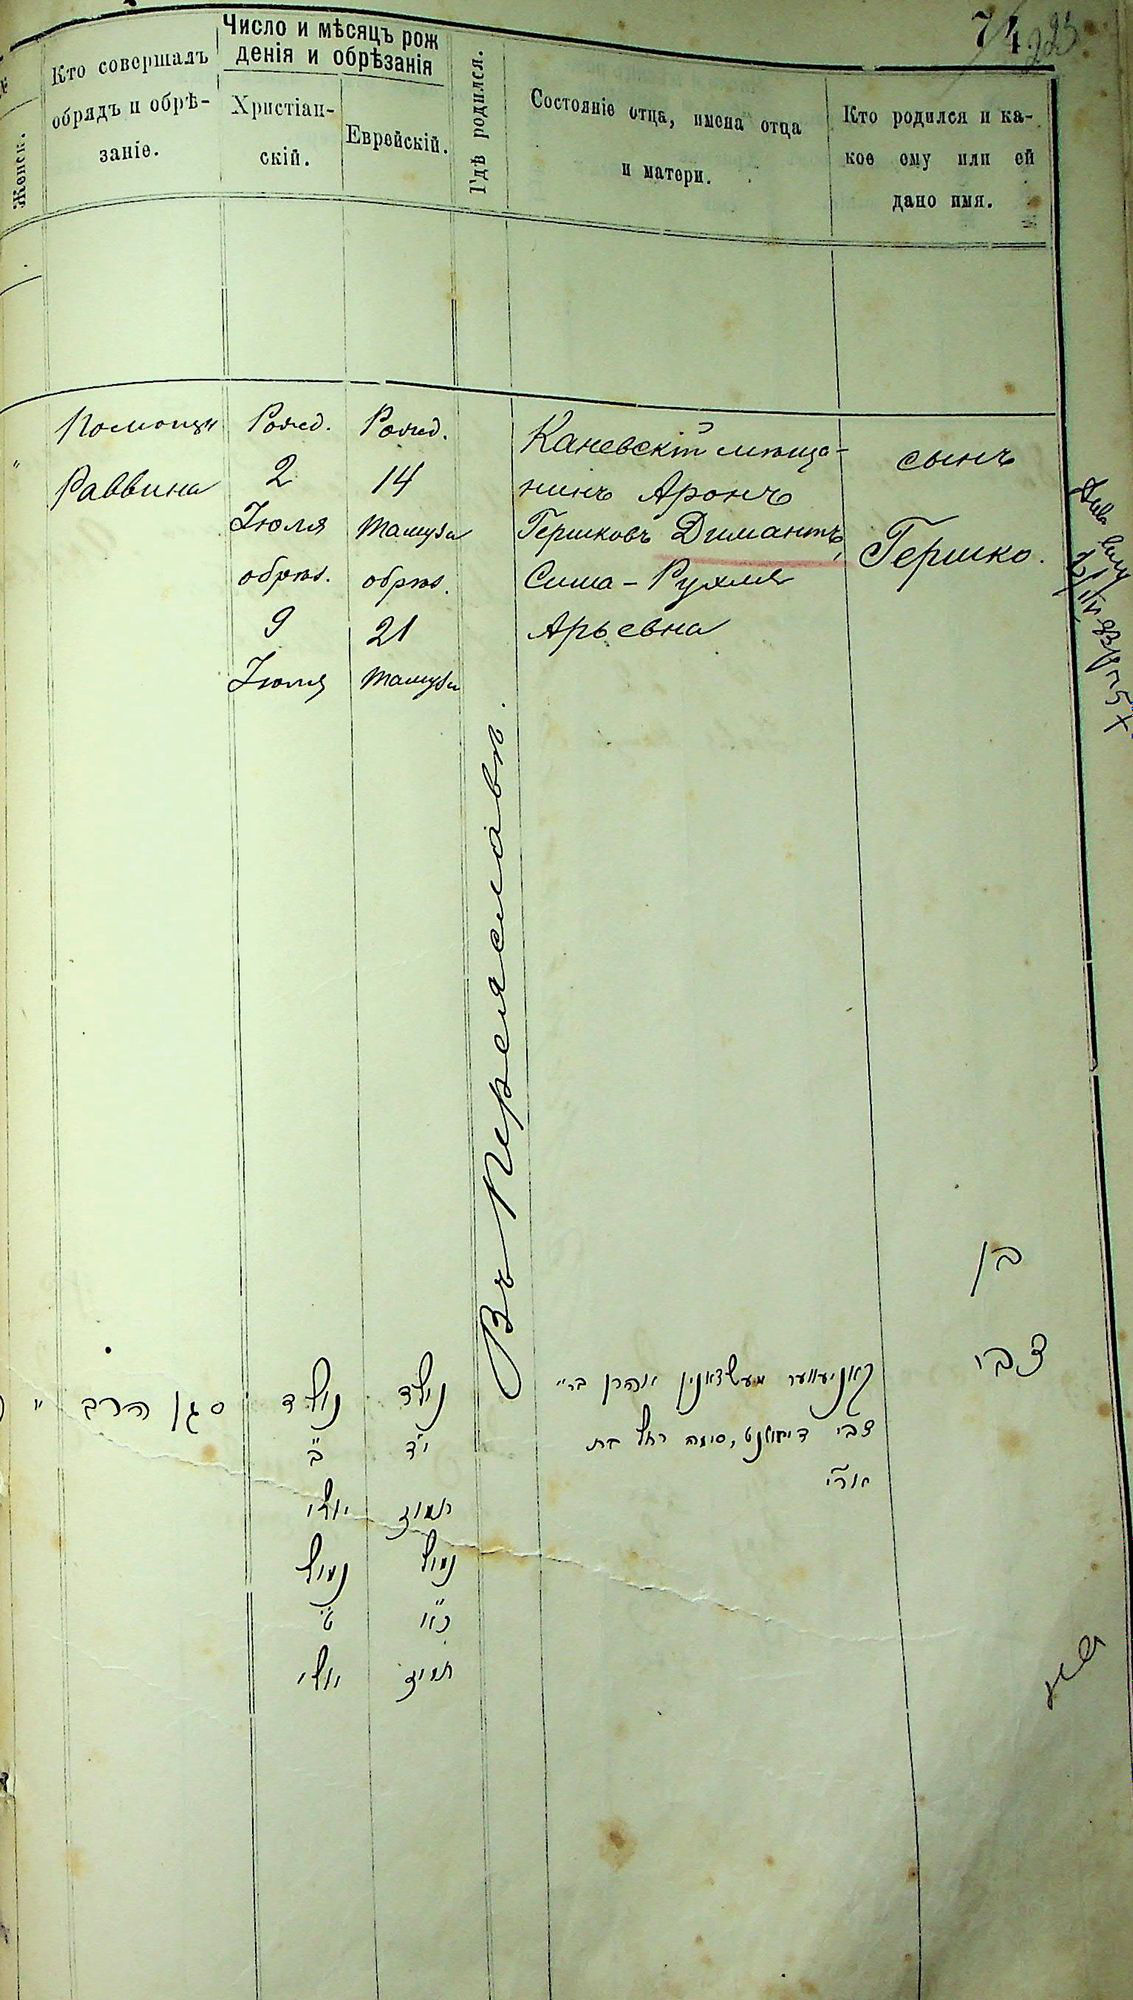 74
225
Женск.
Кто совершалъ
обрядъ и обрѣ-
заніе.
Число и мѣсяцъ рож
денія и обрѣзанія
Христіан-
скій.
Еврейскій.
Гдѣ родился.
Состояніе отца, имена отца
и матери.
Кто родился и ка-
кое ему или ей
дано имя.
"
Помощн
Раввина
Рожд.
2
Іюля
обрѣз.
9
Іюля
Рожд.
14
Тамуза
обрѣз.
21
Тамуза
Въ Переяславѣ.
Каневскій мѣща-
нинъ Аронъ
Гершковъ Димантъ,
Сима-Рухля
Арьевна
сынъ
Гершко.
בן
צבי
קאניעווער מעשצאנין אהרן בר״
צבי דימאנט, סימה רחל בת
ארי׳
נולד
י״ד
תמוז
נמול
כ״א
תמוז
נולד
ב׳
יולי
נמול
ט׳
יולי
סגן הרב
"